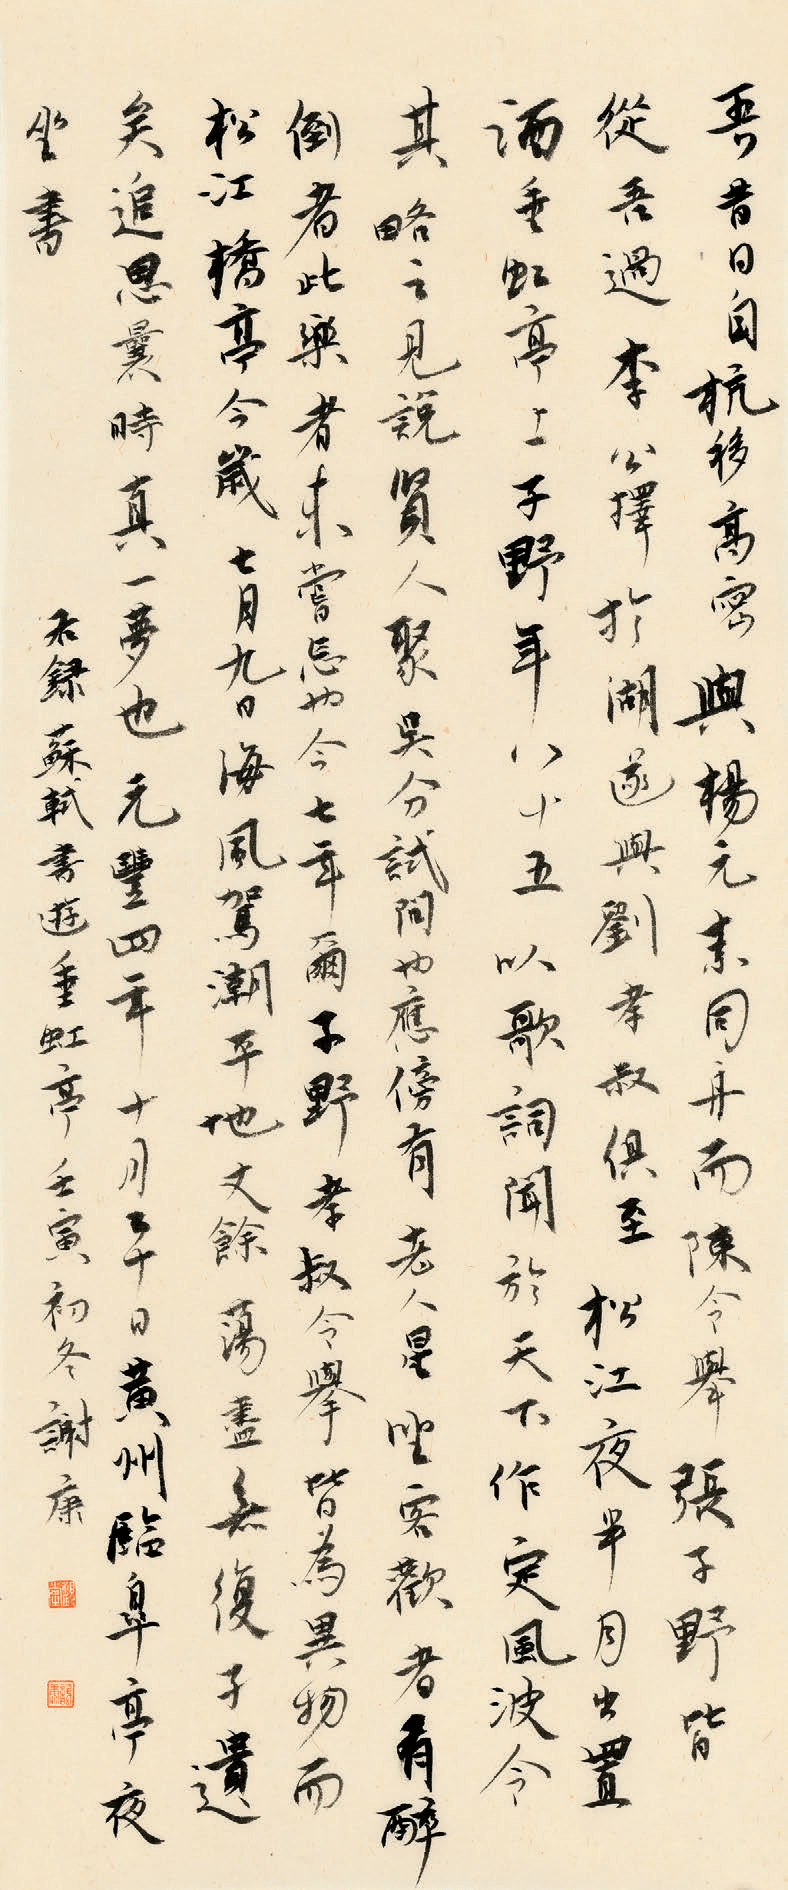 吾昔日自杭移高密與楊元素同舟而陳令舉張子野皆
從吾過李公擇於湖遂與劉孝叔俱至松江夜半月出置
酒垂虹亭上子野年八十五以歌詞聞於天下作定風波令
其略云見說賢人聚吳分試問也應傍有老人星坐客歡者有醉
倒者此樂者未嘗忘也今七年爾子野孝叔令舉皆為異物而
松江橋亭今歲七月九日海風駕潮平地丈餘蕩盡無復孑遺
矣追思曩時真一夢也元豐四年十月二十日黃州臨皋亭夜
坐書
右錄蘇軾書遊垂虹亭壬寅初冬謝康